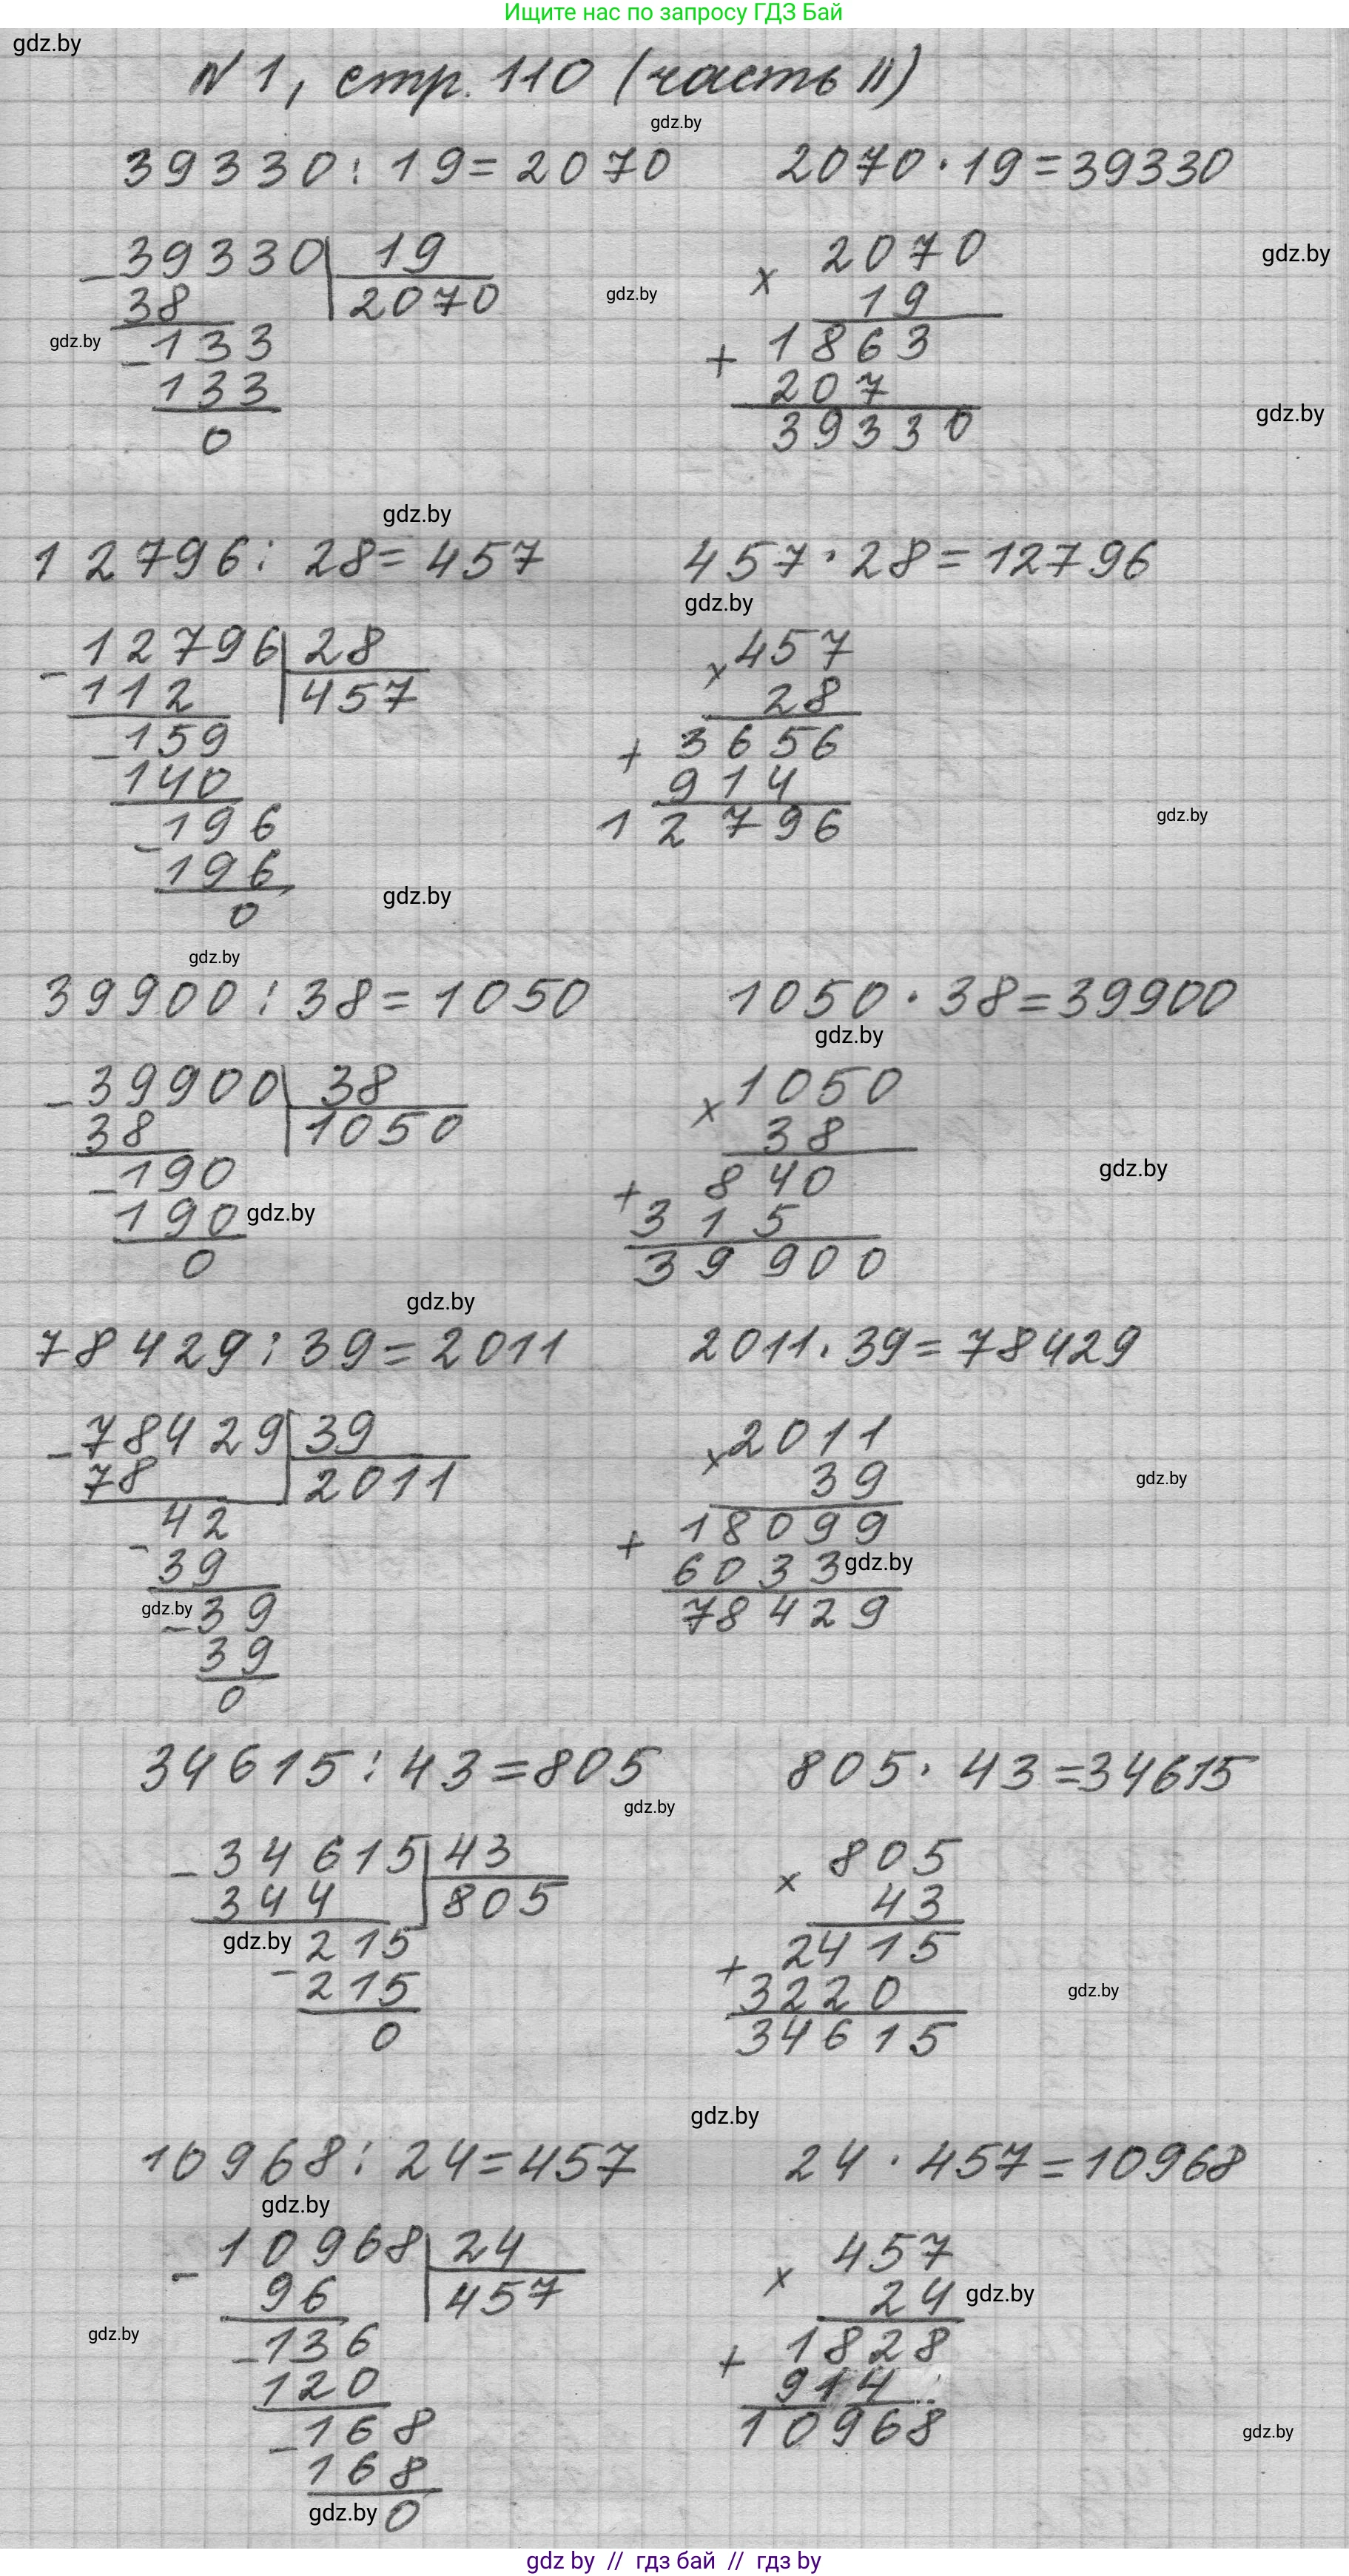 Ищите нас по запросу ГДЗ Бай
gdz.by
N 1, стр. 110 (часть II)
gdz.by
39330 : 19 = 2070
2070 · 19 = 39330
- 39330 | 19
38 | 2070
- 133
133
0
gdz.by
gdz.by
x 2070
19
+ 1863
207
39330
gdz.by
gdz.by
gdz.by
12796 : 28 = 457
457 · 28 = 12796
gdz.by
- 12796 | 28
112 | 457
- 159
140
- 196
196
0
x 457
28
+ 3656
914
12796
gdz.by
gdz.by
gdz.by
39900 : 38 = 1050
1050 · 38 = 39900
gdz.by
- 39900 | 38
38 | 1050
- 190
190
0
gdz.by
x 1050
38
+ 840
315
39900
gdz.by
gdz.by
78429 : 39 = 2011
2011 · 39 = 78429
- 78429 | 39
78 | 2011
- 42
39
- 39
39
0
gdz.by
x 2011
39
+ 18099
6033
78429
gdz.by
gdz.by
34615 : 43 = 805
805 · 43 = 34615
gdz.by
- 34615 | 43
344 | 805
- 215
215
0
gdz.by
x 805
43
+ 2415
3220
34615
gdz.by
gdz.by
10968 : 24 = 457
24 · 457 = 10968
gdz.by
- 10968 | 24
96 | 457
- 136
120
- 168
168
0
gdz.by
gdz.by
x 457
24
+ 1828
914
10968
gdz.by
gdz.by
gdz by // гдз бай // гдз by